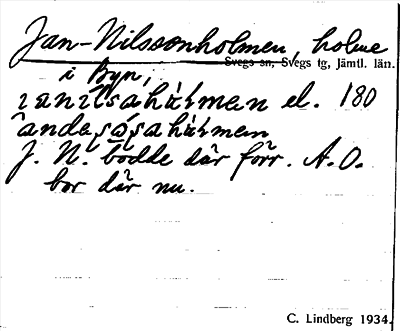 Jan-Nilssonholmen, holme
Svegs sn, Svegs tg, Jämtl. län.
i Byn,
el. 180
J. N. bodde där förr. A. O.
bor där nu.
C. Lindberg 1934.